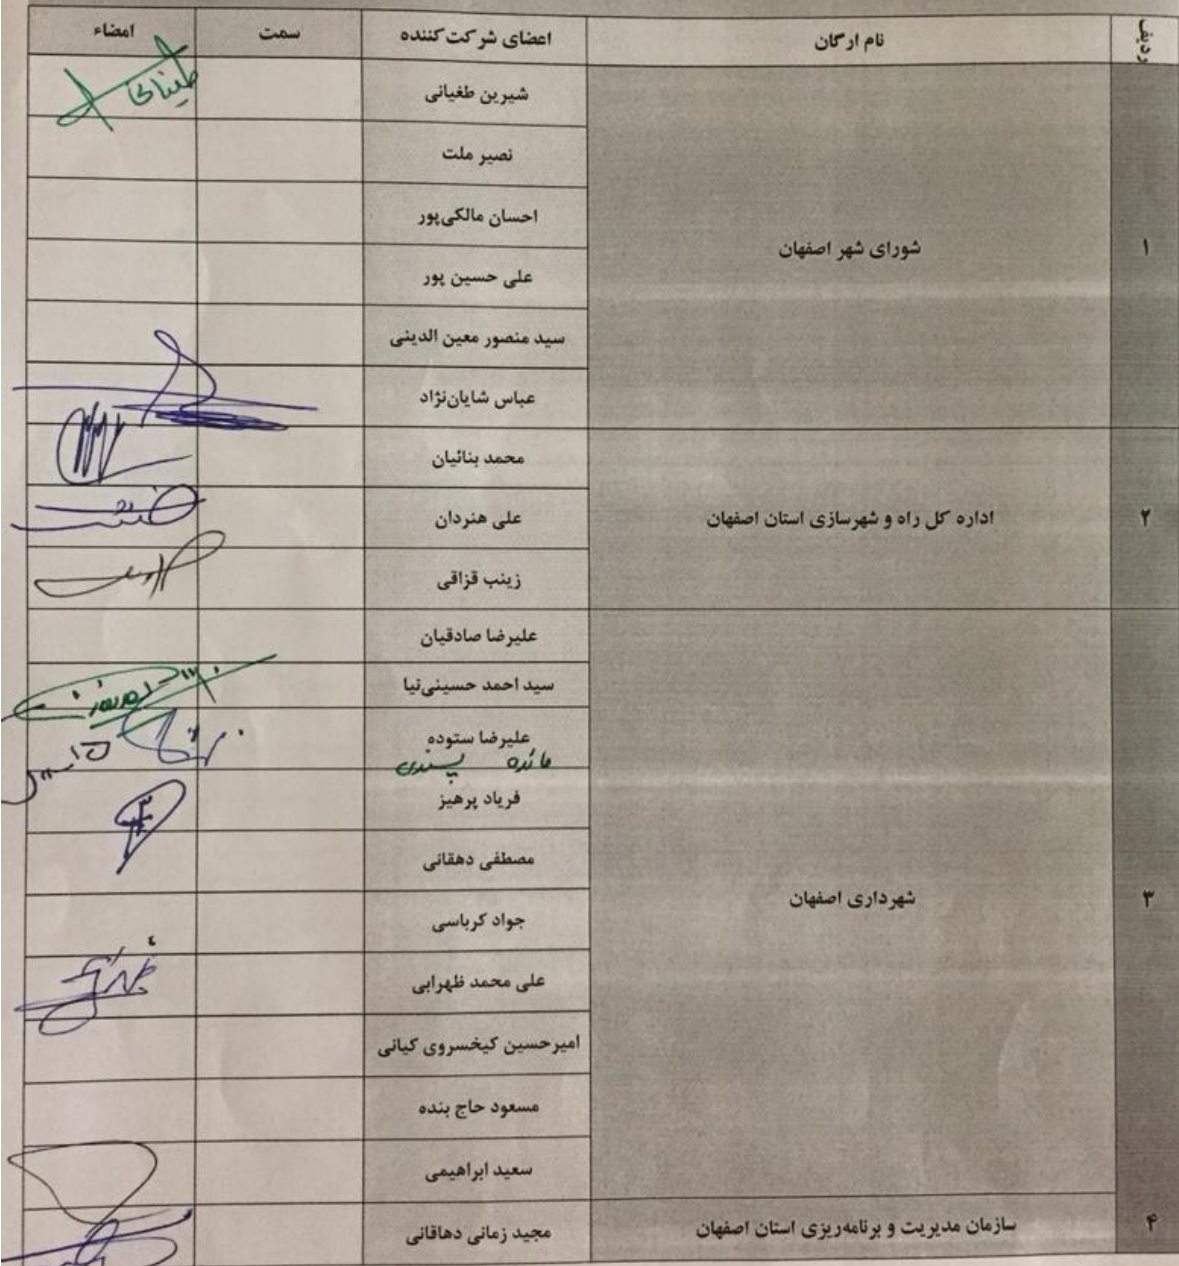 ردیف نام ارگان اعضای شرکت‌کننده سمت امضاء
۱ شورای شهر اصفهان
شیرین طغیانی
نصیر ملت
احسان مالکی‌پور
علی حسین پور
سید منصور معین الدینی
عباس شایان‌نژاد
۲ اداره کل راه و شهرسازی استان اصفهان
محمد بنائیان
علی هنردان
زینب قزاقی
۳ شهرداری اصفهان
علیرضا صادقیان
سید احمد حسینی‌نیا
علیرضا ستوده
مائده پسندی
فریاد پرهیز
مصطفی دهقانی
جواد کرباسی
علی محمد ظهرابی
امیرحسین کیخسروی کیانی
مسعود حاج بنده
سعید ابراهیمی
۴ سازمان مدیریت و برنامه‌ریزی استان اصفهان
مجید زمانی دهاقانی